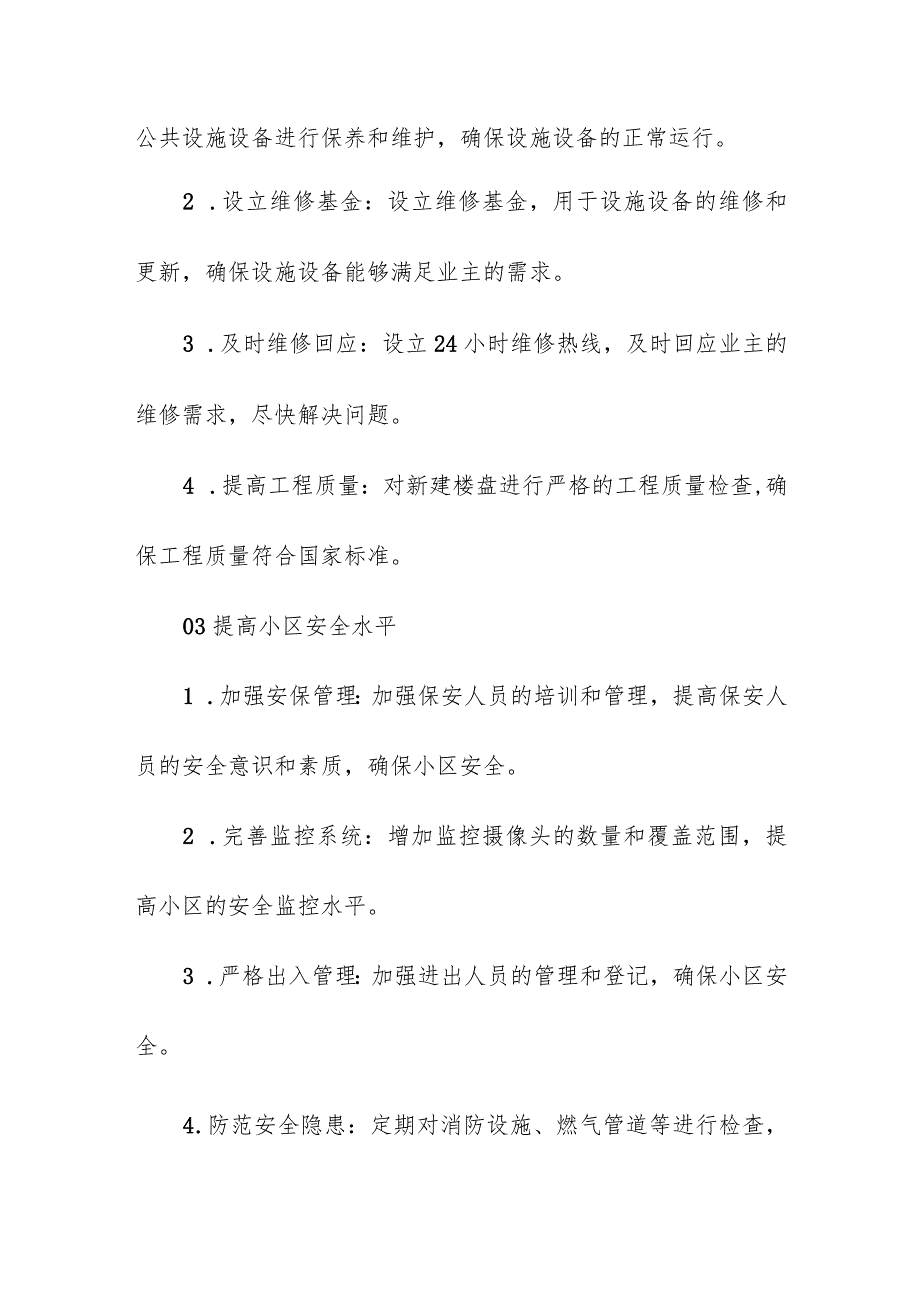 公共设施设备进行保养和维护，确保设施设备的正常运行。
2 .设立维修基金：设立维修基金，用于设施设备的维修和
更新，确保设施设备能够满足业主的需求。
3 .及时维修回应：设立24小时维修热线，及时回应业主的
维修需求，尽快解决问题。
4 .提高工程质量：对新建楼盘进行严格的工程质量检查,确
保工程质量符合国家标准。
03提高小区安全水平
1 .加强安保管理：加强保安人员的培训和管理，提高保安人
员的安全意识和素质，确保小区安全。
2 .完善监控系统：增加监控摄像头的数量和覆盖范围，提
高小区的安全监控水平。
3 .严格出入管理：加强进出人员的管理和登记，确保小区安
全。
4.防范安全隐患：定期对消防设施、燃气管道等进行检查，